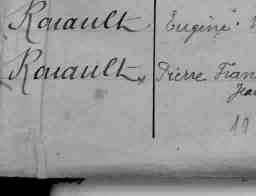 Rouault Eugène
Rouault, Pierre Fran
Jean
10